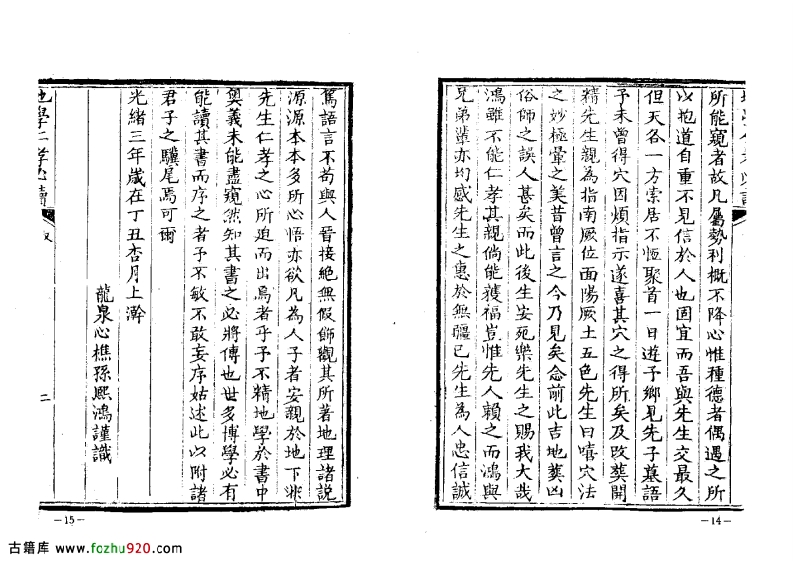 所能窺者故凡屬勢利概不降心惟種德者偶遇之所
以抱道自重不見信於人也固宜而吾與先生交最久
但天各一方索居不恆聚首一日遊予鄉見先子墓語
予未曾得穴因煩指示遂喜其穴之得所矣及改葬開
精先生親為指南厥位面陽厥土五色先生曰嘻穴法
之妙極暈之美昔曾言之今乃見矣念前此吉地葬凶
俗師之誤人甚矣而此後生安死樂先生之賜我大哉
鴻雖不能仁孝其親倘能獲福豈惟先人賴之而鴻與
兄弟輩亦均感先生之惠於無疆已先生為人忠信誠
—14—
篤語言不苟與人晉接絕無假飾觀其所著地理諸說
源源本本多所心悟亦欲凡為人子者安親於地下淋
先生仁孝之心所迫而出焉者乎予不精地學於書中
奧義未能盡窺然知其書之必將傳也世多博學必有
能讀其書而序之者予不敏不敢妄序姑述此以附諸
君子之驥尾焉可爾
光緒三年歲在丁丑杏月上澣
龍泉心樵孫熙鴻謹識
地學仁孝必讀
二
—15—
古籍库 www.fozhu920.com